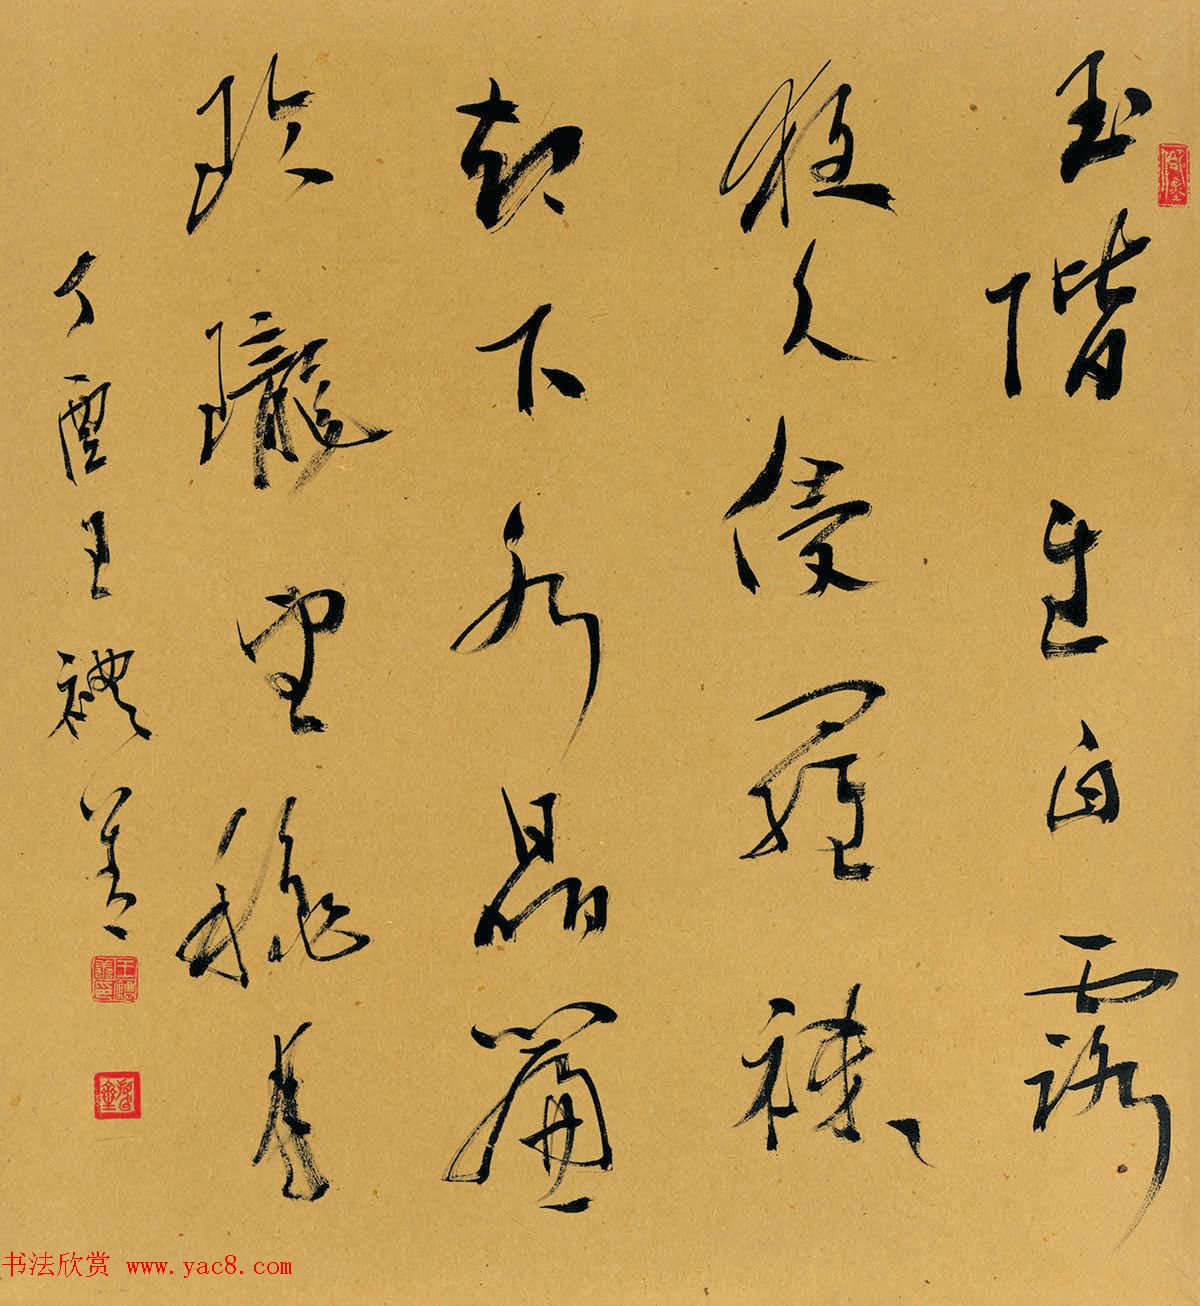 玉階生白露
夜久侵羅襪
却下水晶簾
玲瓏望秋月
丁酉王禮善
书法欣赏 www.yac8.com